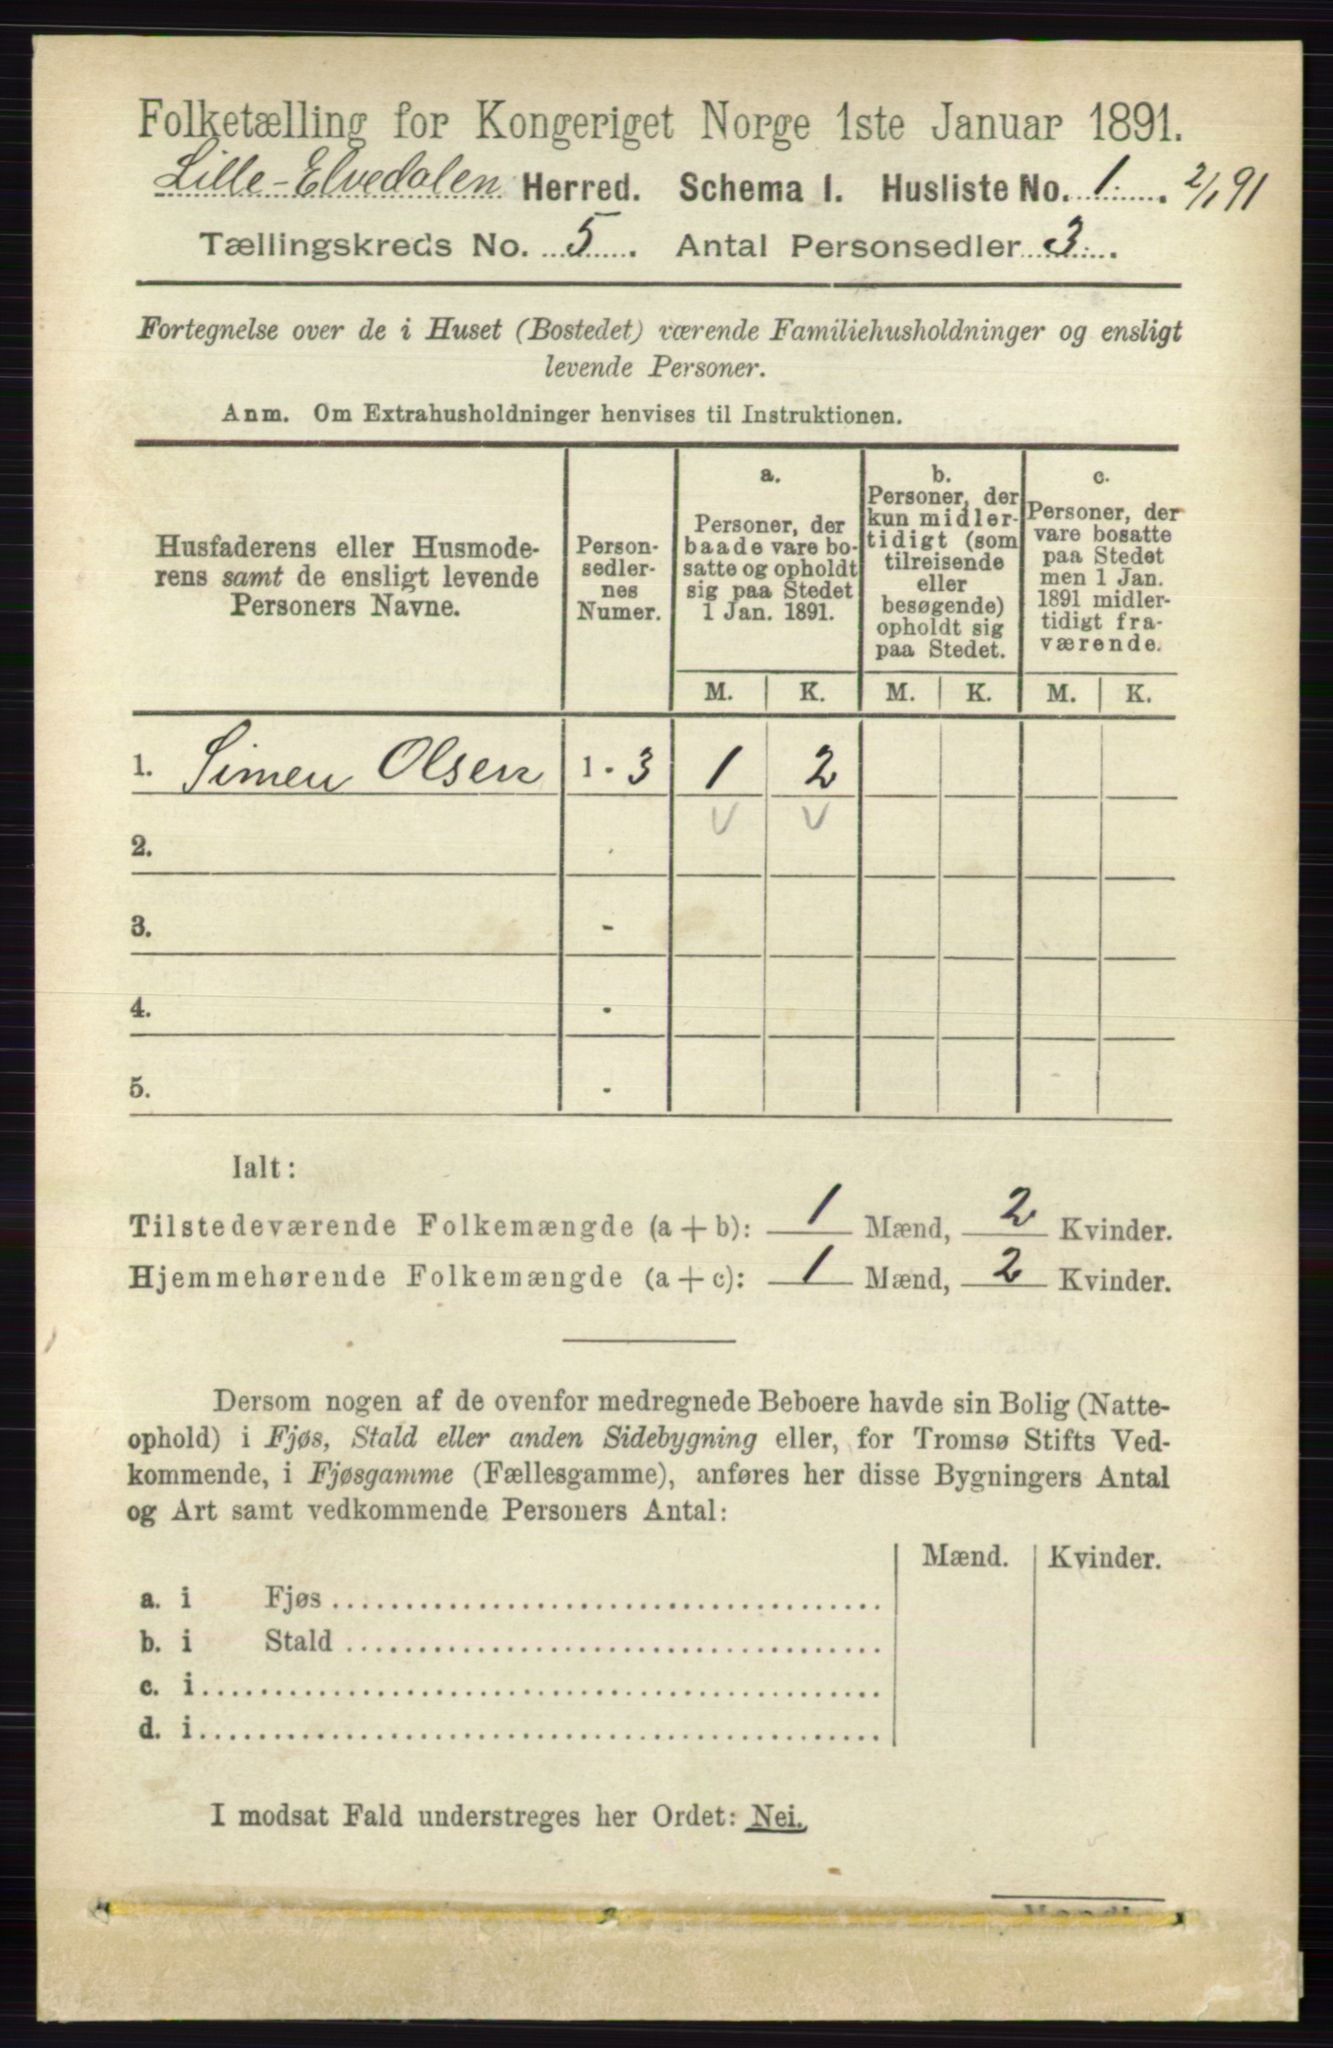 Folketælling for Kongeriget Norge 1ste Januar 1891.
Lille-Elvedalen Herred. Schema I. Husliste No. 1. 2/1 91
Tællingskreds No. 5. Antal Personsedler 3.
Fortegnelse over de i Huset (Bostedet) værende Familiehusholdninger og ensligt
levende Personer.
Anm. Om Extrahusholdninger henvises til Instruktionen.
Husfaderens eller Husmode-
rens samt de ensligt levende
Personers Navne.
Person-
sedler-
nes
Numer.
a.
Personer, der
baade vare bo-
satte og opholdt
sig paa Stedet
1 Jan. 1891.
b.
Personer, der
kun midler-
tidigt (som
tilreisende
eller
besøgende)
opholdt sig
paa Stedet.
c.
Personer, der
vare bosatte
paa Stedet
men 1 Jan.
1891 midler-
tidigt fra-
værende.
M. K. M. K. M. K.
1. Simen Olsen 1 - 3 1 2
2.
3. -
4. -
5. -
Ialt:
Tilstedeværende Folkemængde (a + b): 1 Mænd, 2 Kvinder.
Hjemmehørende Folkemængde (a + c): 1 Mænd, 2 Kvinder.
Dersom nogen af de ovenfor medregnede Beboere havde sin Bolig (Natte-
ophold) i Fjøs, Stald eller anden Sidebygning eller, for Tromsø Stifts Ved-
kommende, i Fjøsgamme (Fællesgamme), anføres her disse Bygningers Antal
og Art samt vedkommende Personers Antal:
Mænd. Kvinder.
a. i Fjøs
b. i Stald
c. i
d. i
I modsat Fald understreges her Ordet: Nei.